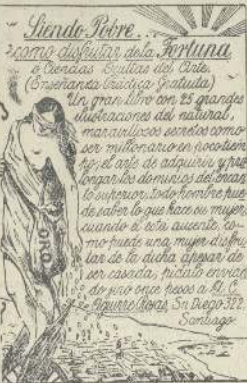 Siendo Pobre...
como disfrutar de la Fortuna
o Ciencias Ocultas del Arte.
(Enseñanza Práctica Gratuita)
Un gran libro con 25 grandes
ilustraciones del natural,
maravillosos secretos como
ser millonario en poco tiem
po, el arte de adquirir y pro
longar los dominios del encan
to superior, todo hombre pue
de saber lo que hace su mujer
cuando él está ausente, co-
mo puede una mujer disfru
tar de la dicha apesar de
ser casada, pídalo envian
do sino once pesos a
Aguirre San Diego 322,
Santiago
ORO